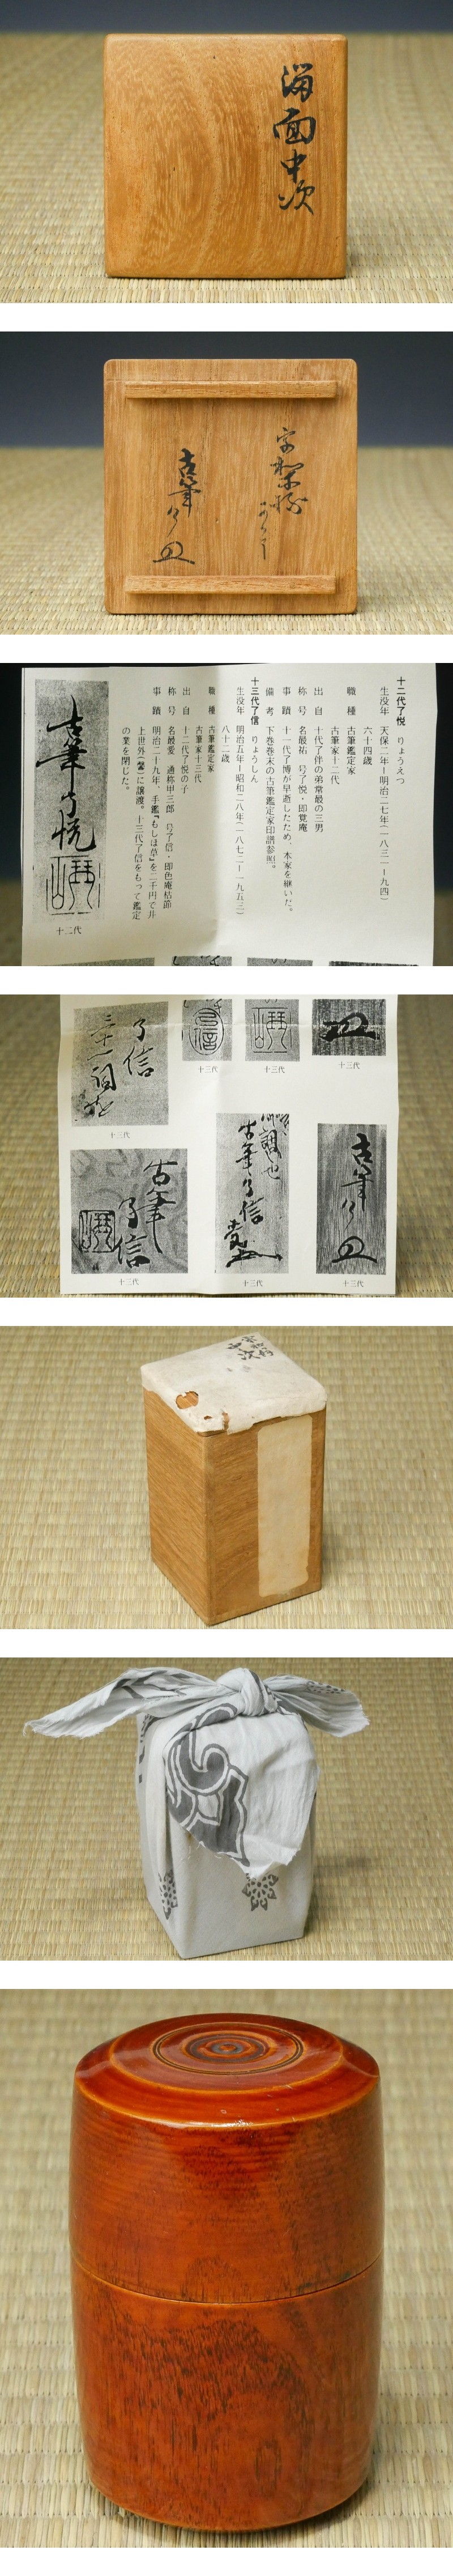 溜面中次
古筆了
十二代了悦 りょうえつ
生没年 天保二年ー明治二七年(一八三一ー九四)
六十四歳
職種 古筆鑑定家
古筆家十二代
出自 十代了伴の弟常最の三男
称号 名最祐 号了悦・即覚庵
事蹟 十一代了博が早逝したため、本家を継いだ。
備考 下巻巻末の古筆鑑定家印譜参照。
十三代了信 りょうしん
生没年 明治五年ー昭和二八年(一八七二ー一九五三)
八十二歳
職種 古筆鑑定家
古筆家十三代
出自 十二代了悦の子
称号 名最愛 通称甲三郎 号了信・即色庵枯節
事蹟 明治二十九年、手鑑『もしほ草』を三千円で井
上世外(馨)に譲渡。十三代了信をもって鑑定
の業を閉じた。
古筆了悦
十二代
十三代
十三代
十三代
了信
十三代
古筆了信
十三代
古筆了信
十三代
古筆了
十三代